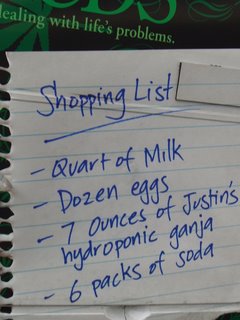 dealing with life's problems.
Shopping List
- Quart of Milk
- Dozen eggs
- 7 Ounces of Justin's
hydroponic ganja
- 6 packs of soda